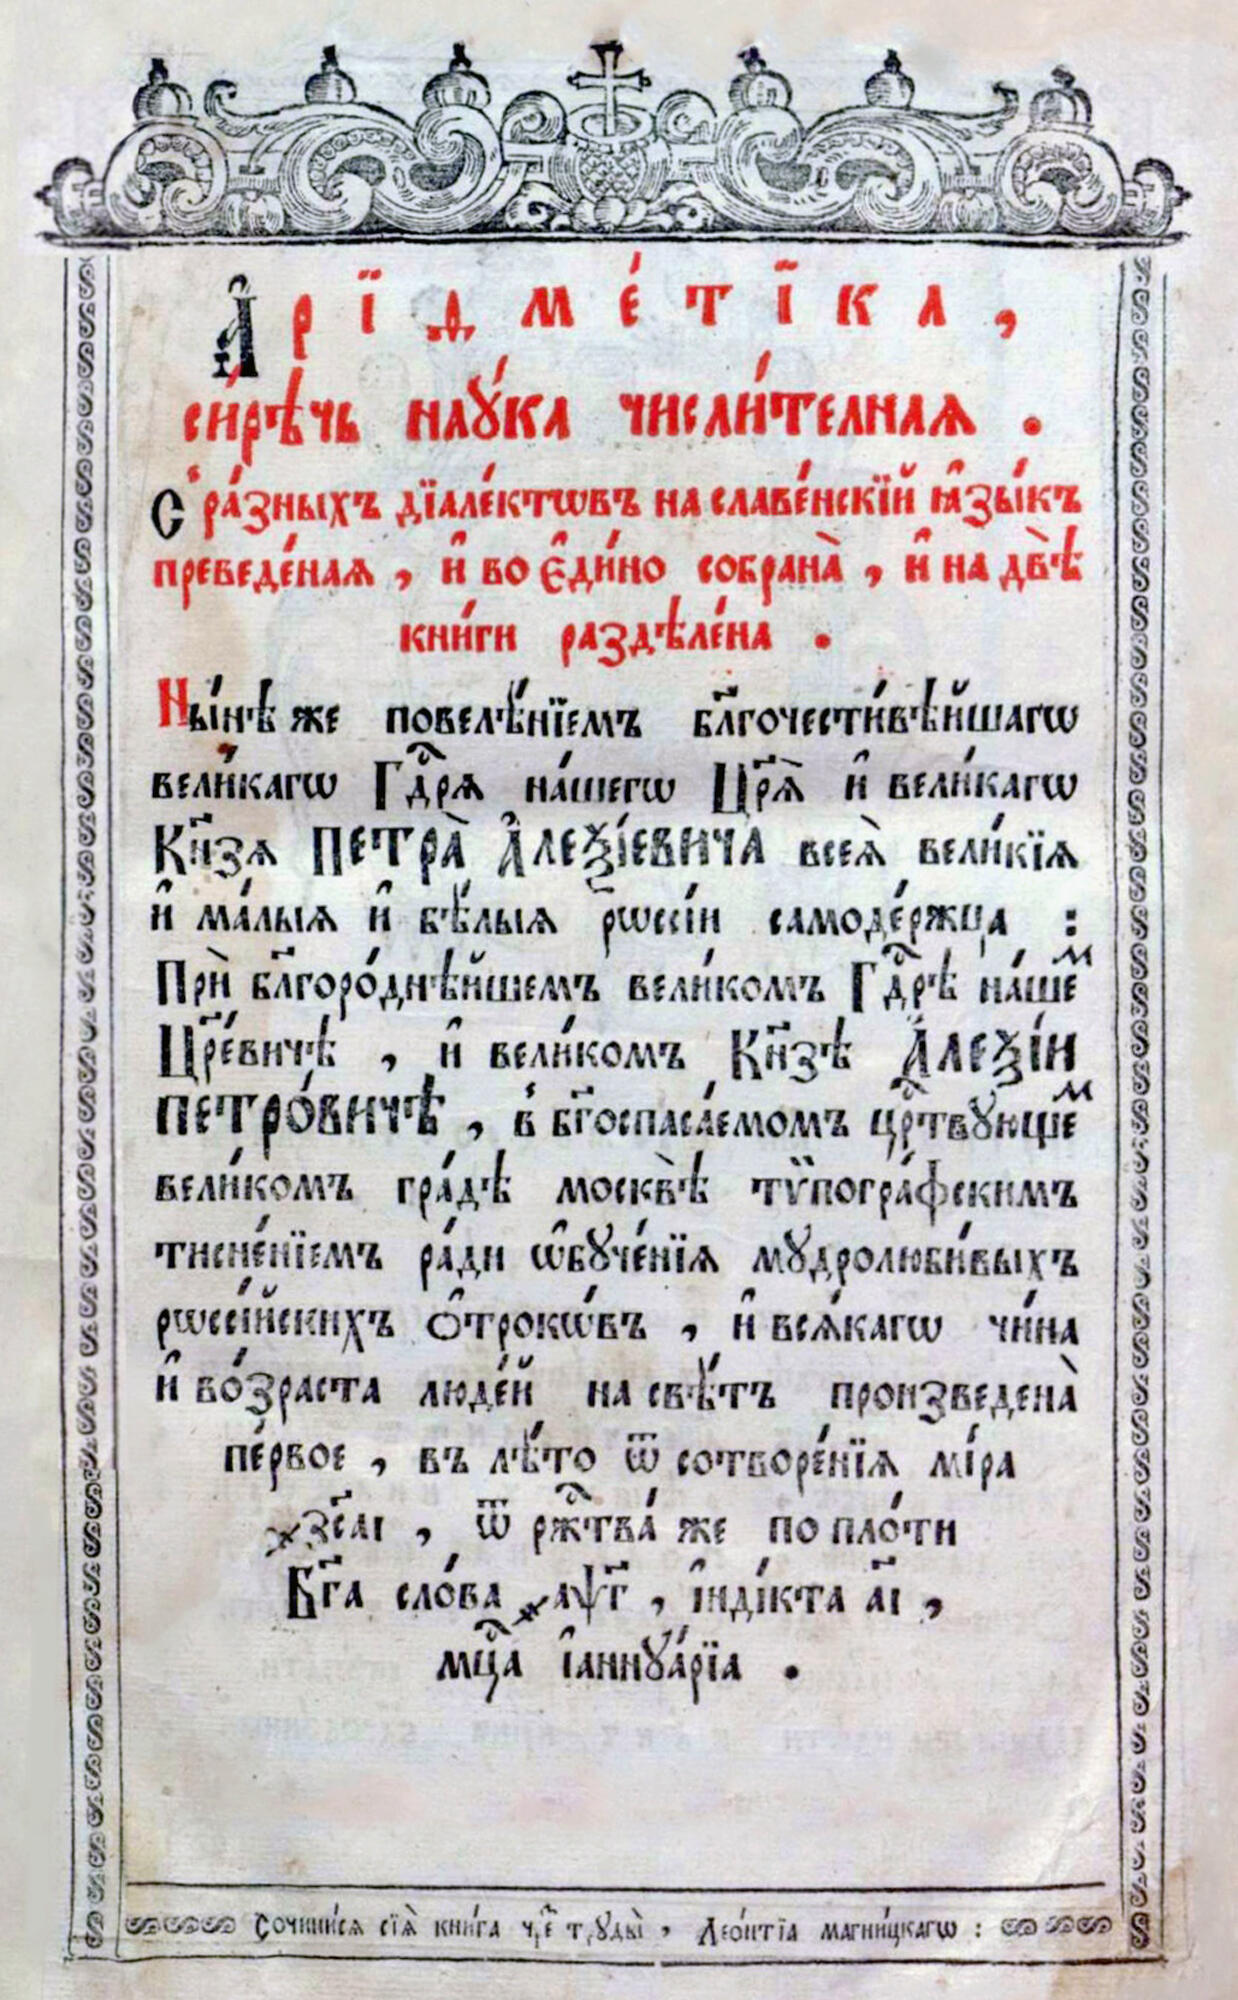 А҆рїѳме́тїка,
си́рѣчь наꙋ́ка числи́телная.
С̾ ра́зныхъ дїале́ктѡвъ на славе́нскїй ꙗ҆зы́къ
преведе́ная, и҆ во є҆ди́но собрана̀, и҆ на двѣ̀
кни́ги раздѣле́на.
Ны́нѣ же повелѣ́нїемъ бл҃гочести́вѣйшагѡ
вели́кагѡ Гдⷭ҇рѧ на́шегѡ Цр҃ѧ̀ и҆ вели́кагѡ
Кн҃зѧ ПЕТРА̀ А҆леѯі́евича всеѧ̀ вели́кїѧ
и҆ ма́лыѧ и҆ бѣ́лыѧ рѡссі́и самоде́ржца :
Прѝ бл҃горо́днѣйшемъ вели́комъ Гдⷭ҇рѣ на́шеⷨ
Цр҃е́вичѣ, и҆ вели́комъ Кн҃зѣ А҆леѯі́и
ПЕТРО́ВИЧѢ, в̾ бг҃оспаса́емомъ црⷭ҇твꙋющеⷨ
вели́комъ гра́дѣ москвѣ̀ тѷпогра́фскимъ
тисне́нїемъ ра́ди ѡ҆бꙋче́нїѧ мꙋдролюби́выхъ
рѡссі́йскихъ ѻ҆́трокѡвъ, и҆ всѧ́кагѡ чи́на
и҆ во́зраста люде́й на свѣ́тъ произведена̀
пе́рвое, въ лѣ́то ѿ сотворе́нїѧ мі́ра
҂зс҃аі, ѿ ржⷭ҇тва́ же по пло́ти
Бг҃а сло́ва ҂аѱ҃г, і҆ндї́кта а҃і,
мцⷭ҇а і҆аннꙋа́рїа.
Сочини́сѧ сїѧ̀ кни́га чре́з трꙋды̀, Лео́нтїа магни́цкагѡ :